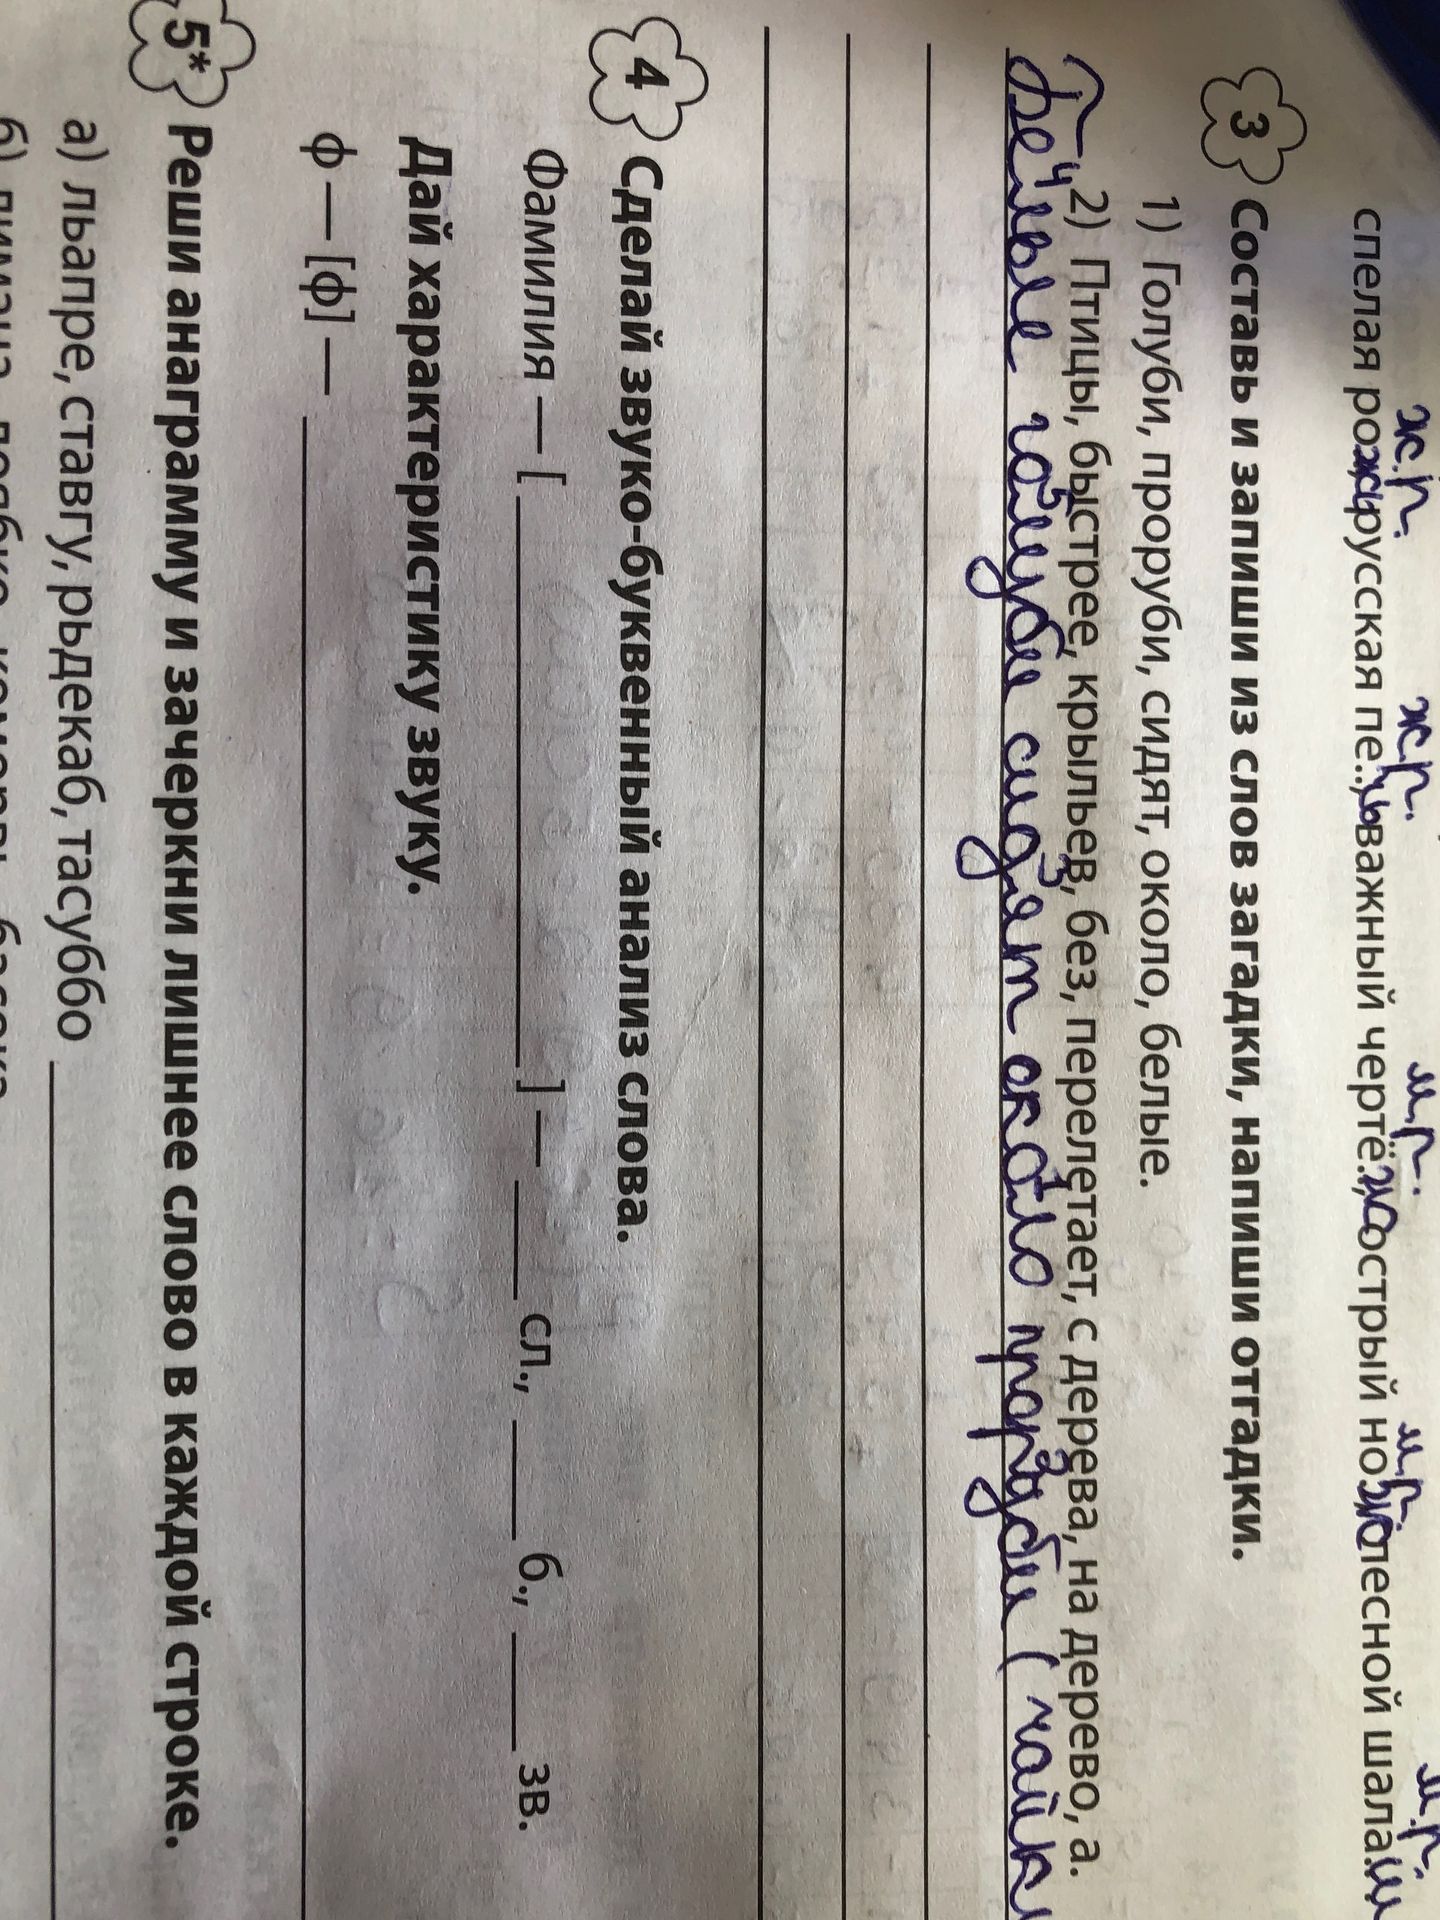 ж.р. ж.р. м.р. м.р. м.р.
спелая рожь, русская пе..ь, важный чертё.ж, острый нож, лесной шала.ш
3 Составь и запиши из слов загадки, напиши отгадки.
1) Голуби, проруби, сидят, около, белые.
2) Птицы, быстрее, крыльев, без, перелетает, с дерева, на дерево, а.
Белые голуби сидят около проруби (чайк
4 Сделай звуко-буквенный анализ слова.
Фамилия — [ ] — сл., б., зв.
Дай характеристику звуку.
ф — [ф] —
5* Реши анаграмму и зачеркни лишнее слово в каждой строке.
а) льапре, ставгу, рьдекаб, тасуббо